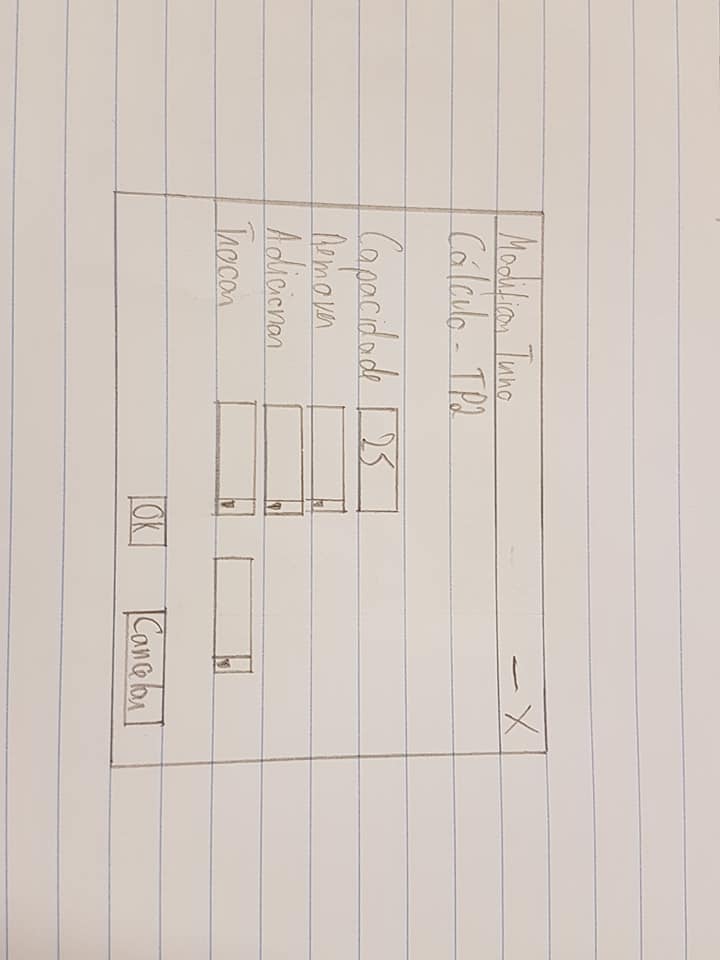 Modificar Turno — X
Cálculo - TP2
Capacidade 25
Remover
Adicionar
Trocar
OK Cancelar